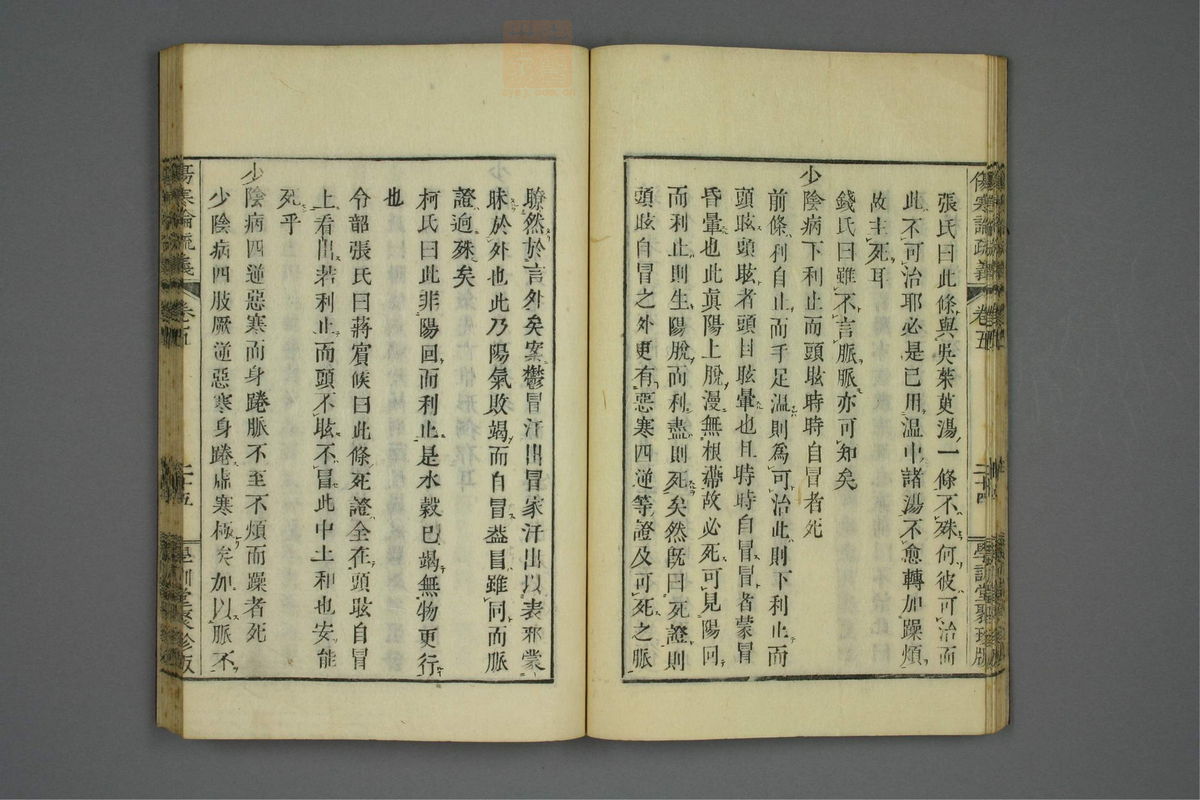 傷寒論疏義 卷五 二十四 學訓堂聚珍版
張氏曰此條與吳茱萸湯一條不殊何彼可治而
此不可治耶必是已用温中諸湯不愈轉加躁煩
故主死耳
錢氏曰雖不言脈脈亦可知矣
少陰病下利止而頭眩時時自冒者死
前條利自止而手足温則爲可治此則下利止而
頭眩頭眩者頭目眩暈也且時時自冒冒者蒙冒
昏暈也此眞陽上脫漫無根蔕故必死可見陽回
而利止則生陽脫而利盡則死矣然既曰死證則
頭眩自冒之外更有惡寒四逆等證及可死之脈
聮然於言外矣案鬱冒汗出冒家汗出以表邪蒙
昧於外也此乃陽氣敗竭而自冒葢冒雖同而脈
證逈殊矣
柯氏曰此非陽回而利止是水穀已竭無物更行
也
令韶張氏曰蔣賓候曰此條死證全在頭眩自冒
上看出若利止而頭不眩不冒此中土和也安能
死乎
少陰病四逆惡寒而身踡脈不至不煩而躁者死
少陰病四肢厥逆惡寒身踡虛寒極矣加以脈不
傷寒論疏義 卷五 二十五 學訓堂聚珍版